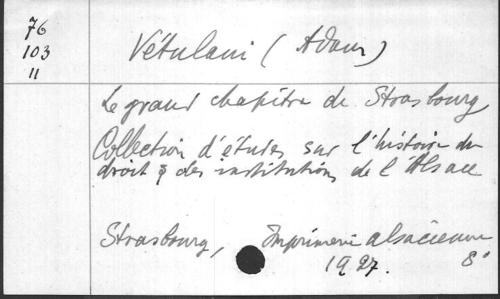 76
103
11
Vétulani (Adam)
Le grand chapitre de Strasbourg
Collection d'études sur l'histoire du
droit & des institutions de l'Alsace
Strasbourg, Imprimerie alsacienne
1927. 8°